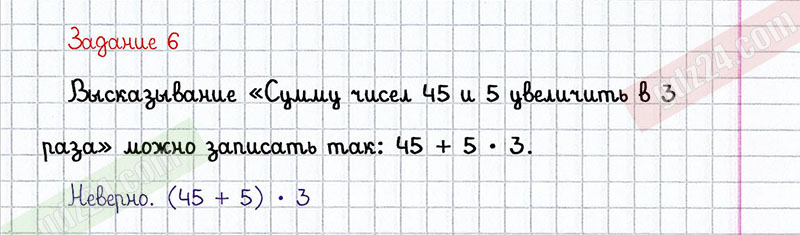 Задание 6
Высказывание «Сумму чисел 45 и 5 увеличить в 3
раза» можно записать так: 45 + 5 · 3.
Неверно. (45 + 5) · 3
gdz24.com
gdz24.com